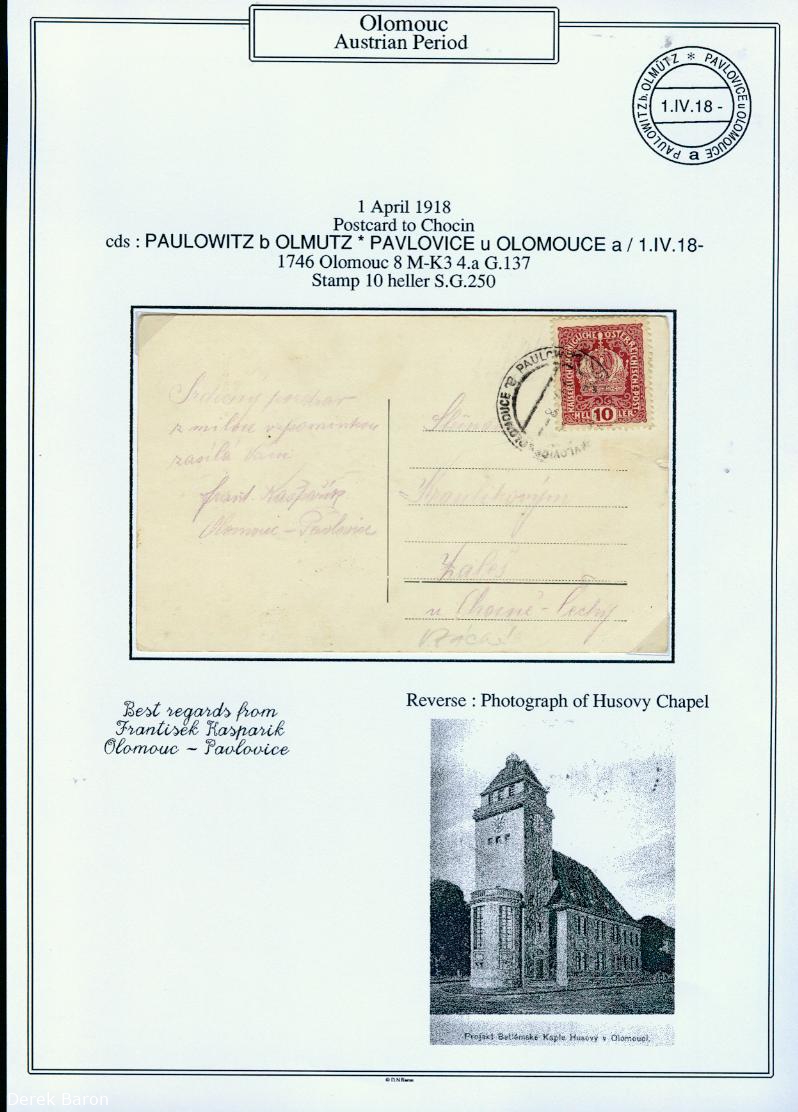 Olomouc
Austrian Period
PAULOWITZ b. OLMÜTZ * PAVLOVICE u OLOMOUCE
1.IV.18 -
a
1 April 1918
Postcard to Chocin
cds : PAULOWITZ b OLMUTZ * PAVLOVICE u OLOMOUCE a / 1.IV.18-
1746 Olomouc 8 M-K3 4.a G.137
Stamp 10 heller S.G.250
KAISERLICHE KÖNIGLICHE ÖSTERREICHISCHE POST
HEL 10 LER
PAULOW
OLOMOUCE
PAVLOVICE
Srdečný pozdrav
z milou vzpomínkou
zasílá Vám
Frant. Kašpařík
Olomouc - Pavlovice
Kroulíkovým
Zaleš
u Chocně - Čechy
Best regards from
Frantisek Kasparik
Olomouc - Pavlovice
Reverse : Photograph of Husovy Chapel
Projekt Betlémské Kaple Husovy v Olomouci.
© D N Baron
Derek Baron